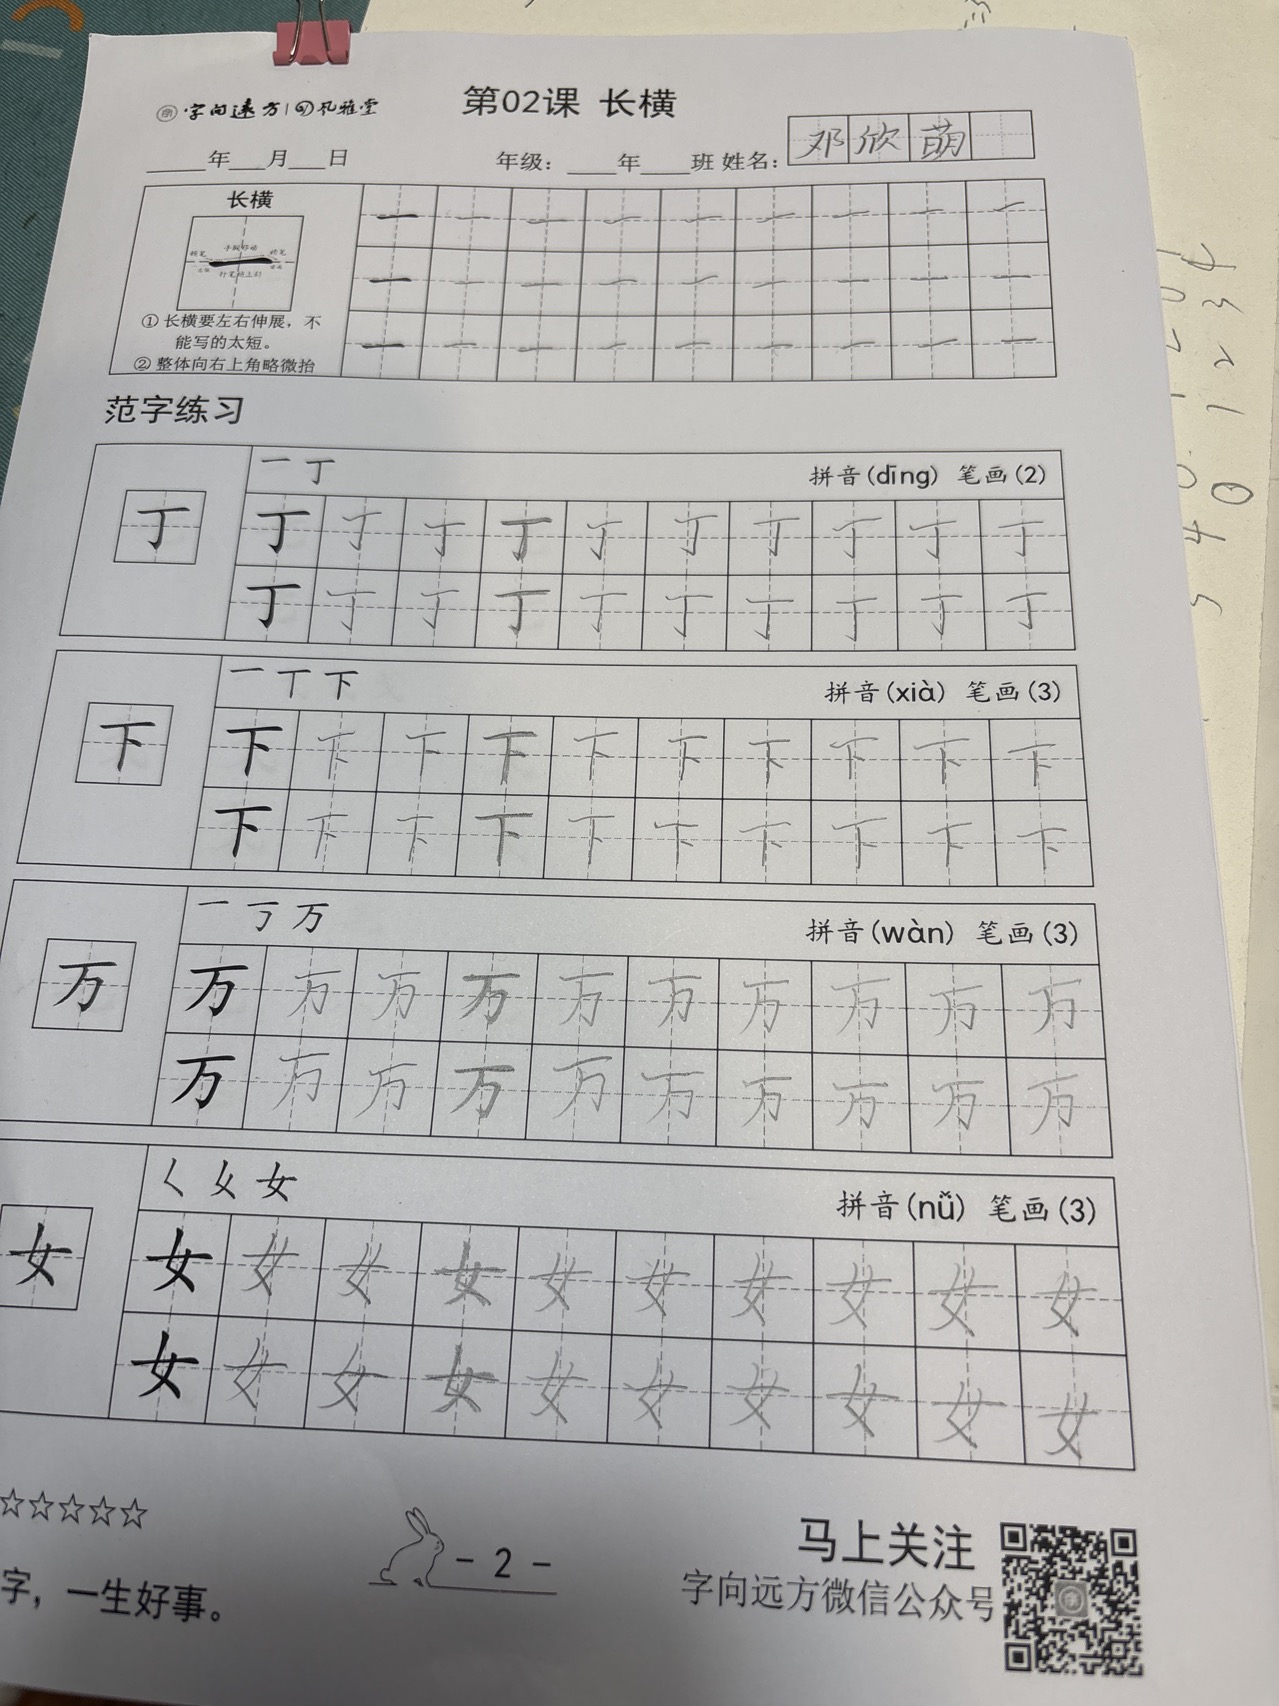 字向远方 | 风雅堂
第02课 长横
____年___月___日
年级：____年____班 姓名：邓欣萌
长横
① 长横要左右伸展，不
能写的太短。
② 整体向右上角略微抬
一 一 一 一 一 一 一 一 一
一 一 一 一 一 一 一 一 一
一 一 一 一 一 一 一 一 一
范字练习
一 丁
拼音(dīng) 笔画(2)
丁
丁 丁 丁 丁 丁 丁 丁 丁 丁 丁
丁 丁 丁 丁 丁 丁 丁 丁 丁 丁
一 丅 下
拼音(xià) 笔画(3)
下
下 下 下 下 下 下 下 下 下 下
下 下 下 下 下 下 下 下 下 下
一 丂 万
拼音(wàn) 笔画(3)
万
万 万 万 万 万 万 万 万 万 万
万 万 万 万 万 万 万 万 万 万
𡿨 乂 女
拼音(nǚ) 笔画(3)
女
女 女 女 女 女 女 女 女 女 女
女 女 女 女 女 女 女 女 女 女
☆☆☆☆☆
字，一生好事。
- 2 -
马上关注
字向远方微信公众号
0 1 2 3 4